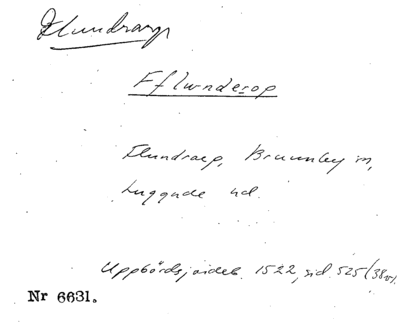 Flundrarp
Fflwnderop
Flundrarp, Brunnby sn,
Luggude hd.
Uppbördsjordeb. 1522, sid. 525 (38v).
Nr 6631.